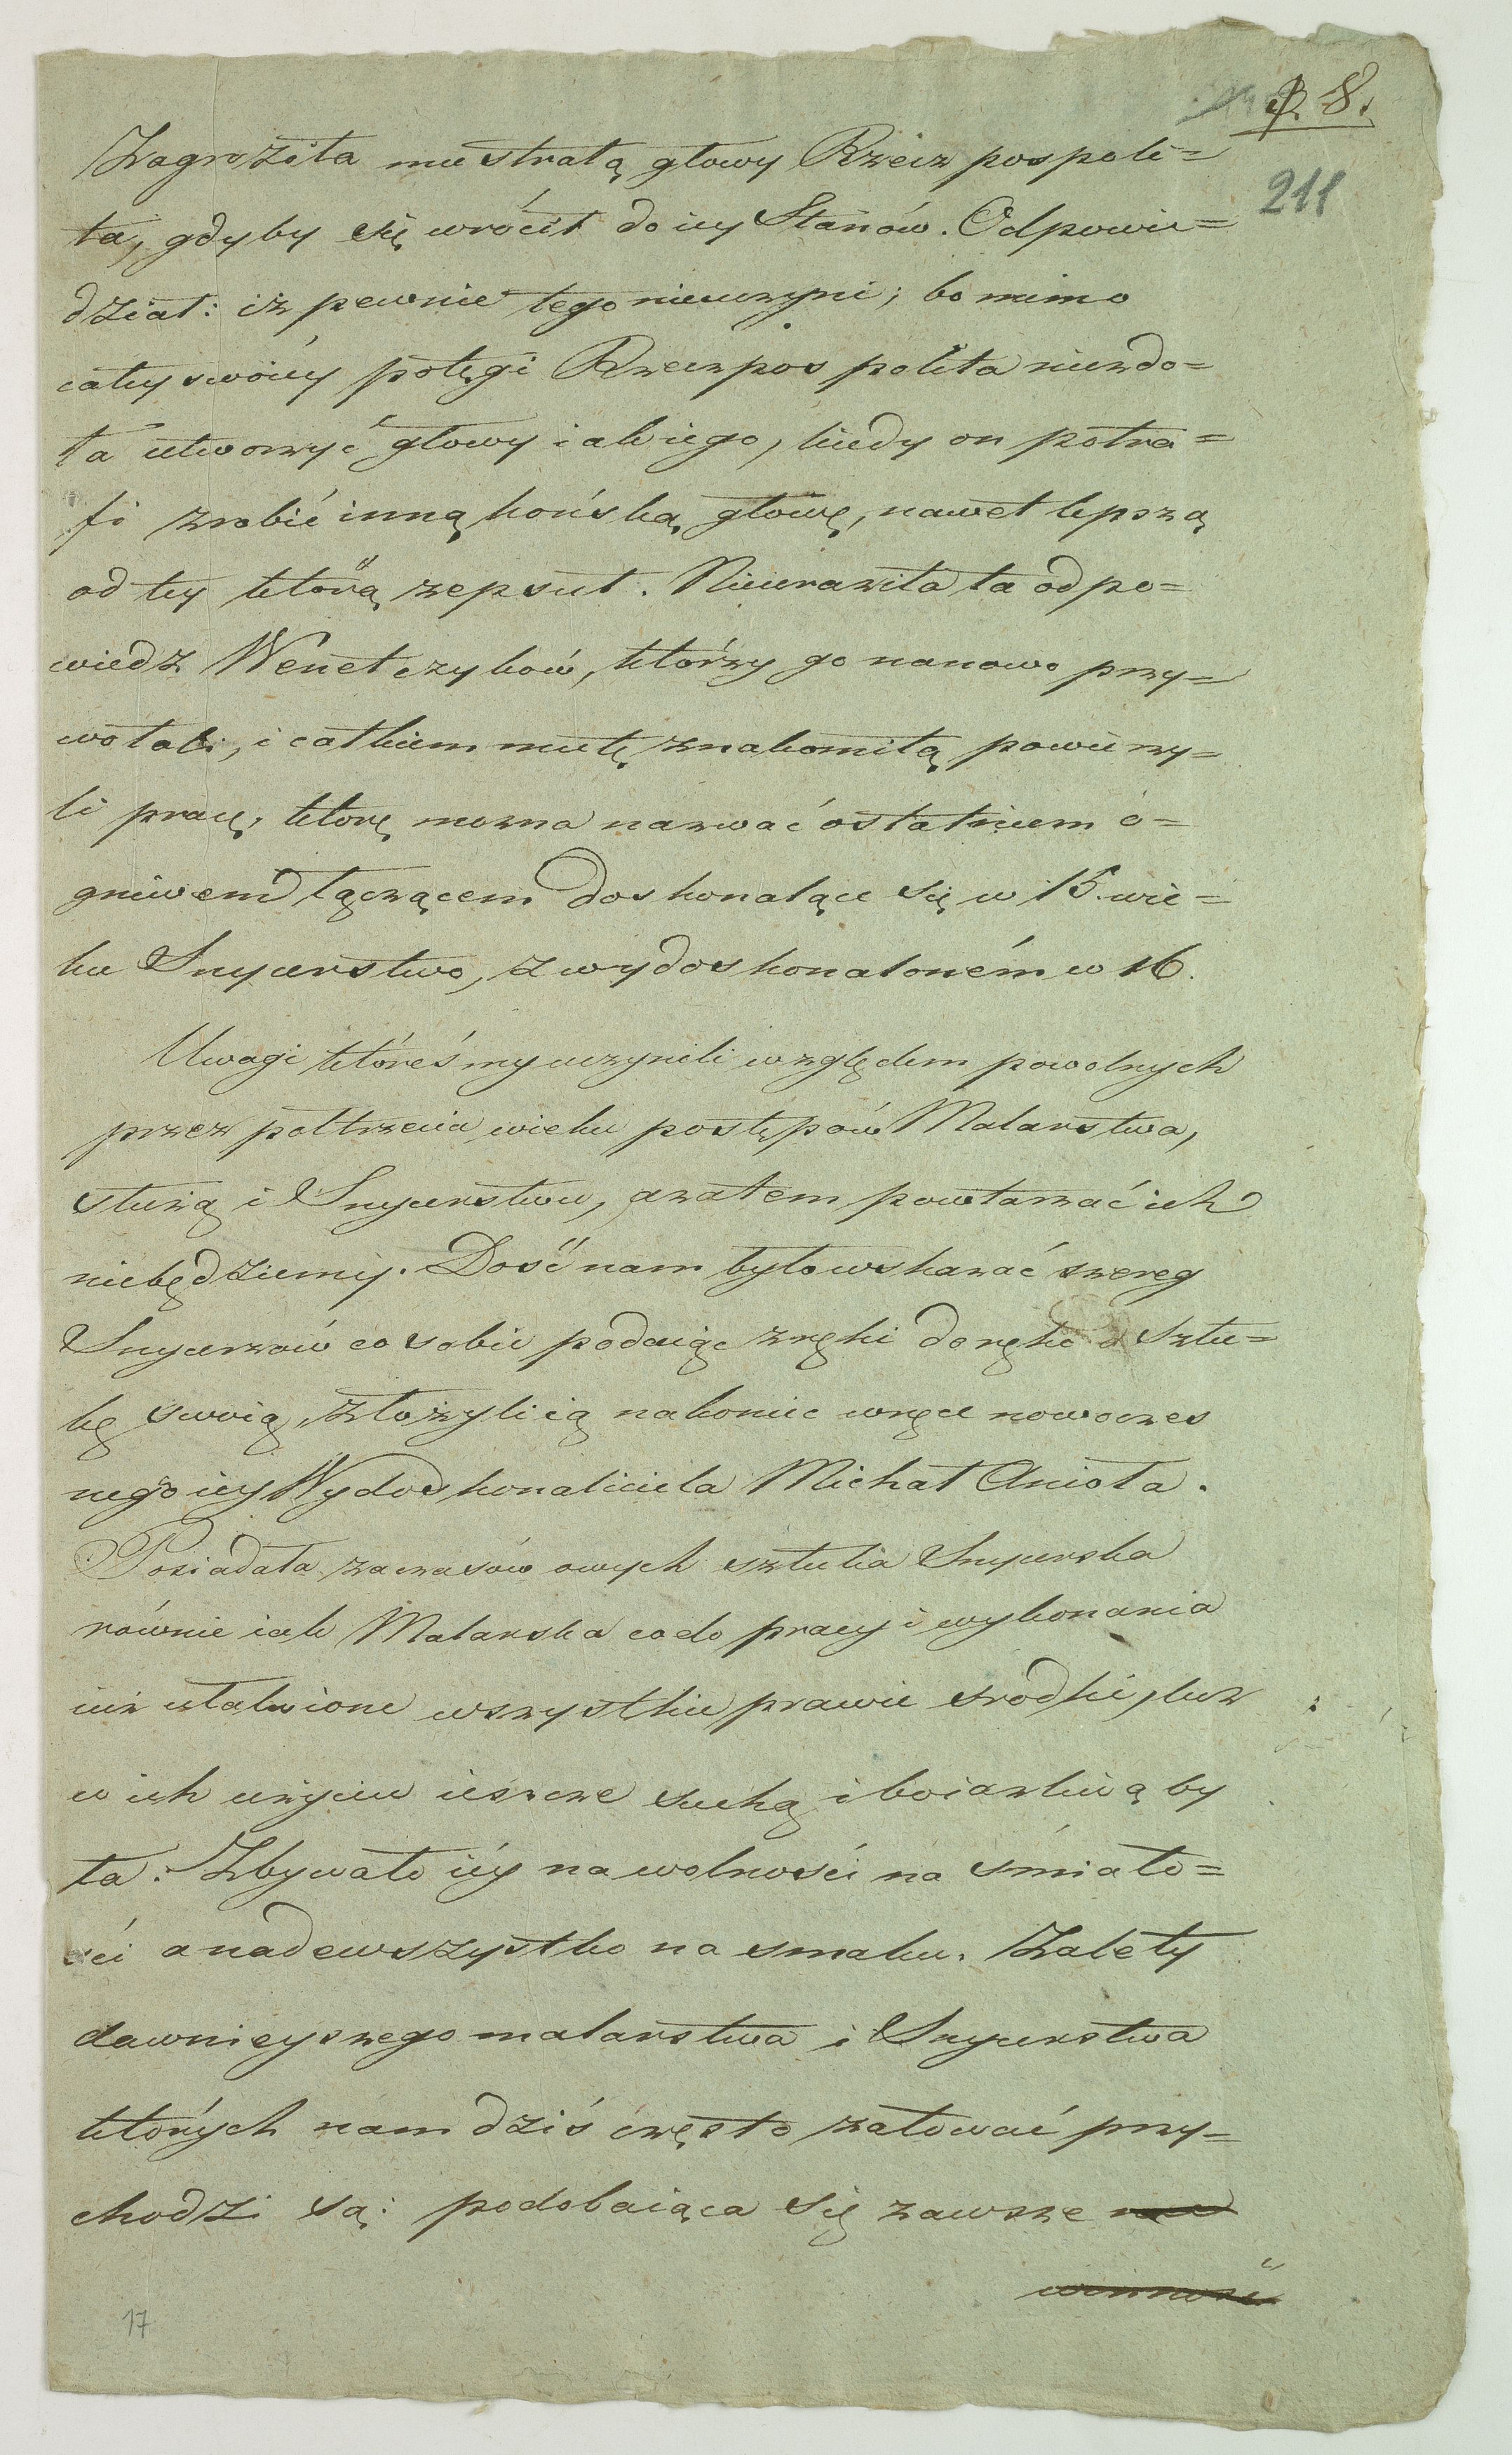 8.
211
Zagroziła mu stratą głowy Rzeczpospoli=
ta, gdyby się wrócił do iey Stanów. Odpowie=
dział: iż pewnie tego nieuczyni; bo mimo
całey swoiéy potęgi Rzeczpospolita niezdo=
ła utworzyć głowy iakiego, kiedy on potra=
fi zrobić inną końską głowę, nawet lepszą
od tey którą zepsuł. Nieuraziła ta odpo=
wiedz Wenetczyków, którzy go nanowo przy=
wołali, i całkiem mu tę znakomitą powierzy=
li pracę, którę mozna nazwać ostatniem o=
gniwem łączącem doskonalące się w 15. wie=
ku Snycerstwo, z wydoskonaloném w 16.
Uwagi któreśmy uczynili względem powolnych
przez półtrzecia wieku postępów Malarstwa,
służą i Snycerstwu, azatem powtarzać ich
niebędziemy. Dość nam było wskazać szereg
Snycerzów co sobie podaiąc zręki do ręki Sztu=
kę swoią, złożyli ią nakoniec wręce nowoczes
nego iey Wydoskonaliciela Michał Anioła.
Posiadała zaczasów owych sztuka Snycerska
równie iak Malarska codo pracy i wykonania
iuż ułatwione wszystkie prawie srodki, lecz
w ich użyciu ieszcze suchą i boiazliwą by
ła. Zbywało iéy na wolności na śmiało=
ści anadewszystko na smaku. Zalety
dawnieyszego malarstwa i Snycerstwa
których nam dziś często załować przy=
chodzi są: podobaiąca się zawsze nie
winność
17